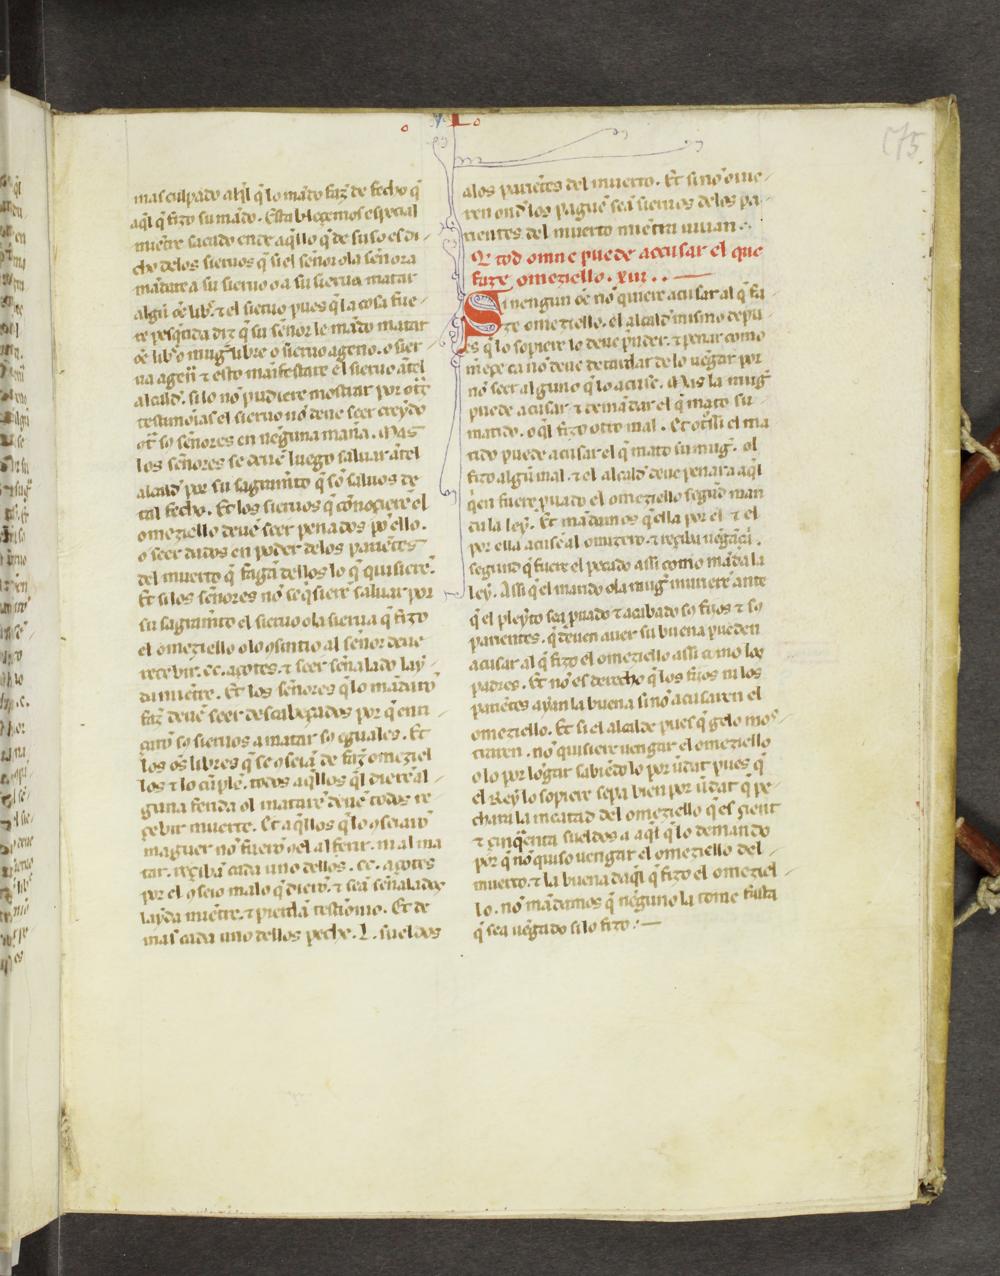 VI
175
mas culpado aq̃l q̃ lo mãdo faz̃ de fecho q̃
aq̃l q̃ fizo su mãdo. Estableçemos espeçial
miẽtre sacado ende aq̃llo q̃ de suso es di
cho delos sieruos q̃ si el señor o la señora
mãdare a su sieruo o a su sierua matar
algũ õe libr̃. ⁊ el sieruo pues q̃ la cosa fue
re pesq̃rida diz̃ q̃ su señor le mãdo matar
õe libr̃o mug̃ libre o sieruo ageno. o sier
ua agẽa ⁊ esto manifestare el sieruo ãtel
alcalđ. si lo nõ pudiere mostrar por ot̃ͤ
testimonias el sieruo nõ deue seer creydo
cõt̃ so señores en neguna mañ̃a. Mas
los señores se deuẽ luego saluar ãtel
alcalđ por su sagramẽto q̃ sõ saluos de
tal fecho. Et los sieruos q̃ conoçierẽ el
omeziello deuẽ seer penados por ello.
o seer dados en poder delos pariẽtes
del muerto q̃ fagã dellos lo q̃ quisierẽ.
Et si los señores nõ se q̃sierẽ saluar por
su sagramẽto el sieruo o la sierua q̃ fizo
el omeziello o lo ꝯsintio al señor deue
reçebir. cc. açotes. ⁊ seer señalado lay
da miẽtre. Et los señores q̃ lo mãdarõ
faz̃ deuẽ seer descabeçados por q̃ enui
arõ so sieruos a matar so eguales. Et
los oẽs libres q̃ se ꝯseiã de faz̃ omeziel
los ⁊ lo cũplẽ. todos aq̃llos q̃l dierẽ al
guna ferida ol matarẽ deuẽ todos re
çebir muerte. Et aq̃llos q̃ lo ꝯseiarõ
maguer nõ fuerõ ꝯel al ferir. ni al ma
tar. reçibã cada uno dellos. cc. açotes
por el ꝯseio malo q̃ dierõ. ⁊ seã señalados
layda miẽtre. ⁊ pierdã testimonio. Et de
mas cada uno dellos peche. L. sueldos
alos pariẽtes del muerto. Et si nõ ouie
ren onđ los paguẽ seã sieruos delos pa
rientes del muerto miẽtra uiuan.
Que tod omne puede accusar el que
faze omeziello. xiii.
Si nengun õe nõ quiere acusar al q̃ fa
ze omeziello. el alcalđ mismo depu
es q̃ lo sopiere lo deue p̃nder. ⁊ penar como
meçe ca nõ deue detardar de lo uẽgar por
nõ seer alguno q̃ lo acuse. Mas la mug̃
puede acusar ⁊ demãdar el q̃ mato su
marido. o q̃l fizo otro mal. Et ot̃ssi el ma
rido puede acusar el q̃ mato su mug̃. ol
fizo algũ mal. ⁊ el alcalđ deue penar a aq̃l
q̃en fuere ꝓuado el omeziello segũd man
da la ley. Et mãdamos q̃ ella por el ⁊ el
por ella acuse al omizero. ⁊ reçiba uẽgãça.
segund q̃ fuere el pecado assi como mãda la
ley. Assi q̃ el marido o la mug̃ muriere ante
q̃ el pleyto sea ꝓuado ⁊ acabado so fijos ⁊ so
parientes. q̃ deuen auer su buena pueden
acusar al q̃ fizo el omeziello assi como los
padres. Et nõ es derecho q̃ los fijos ni los
pariẽtes ayan la buena si nõ acusaren el
omeziello. Et si el alcalde pues q̃ gelo mos
traren. nõ quisiere uengar el omeziello
o lo por lõgar sabiẽdolo por ũdat pues q̃
el Rey lo sopiere sepa bien por ũdat q̃ pe
chara la meatad del omeziello q̃ es çient
⁊ çinq̃enta sueldos a aq̃l q̃ lo demando
por q̃ nõ quiso uengar el omeziello del
muerto. ⁊ la buena daq̃l q̃ fizo el omeziel
lo. nõ mãdamos q̃ neguno la tome fasta
q̃ sea uẽgado si lo fizo.